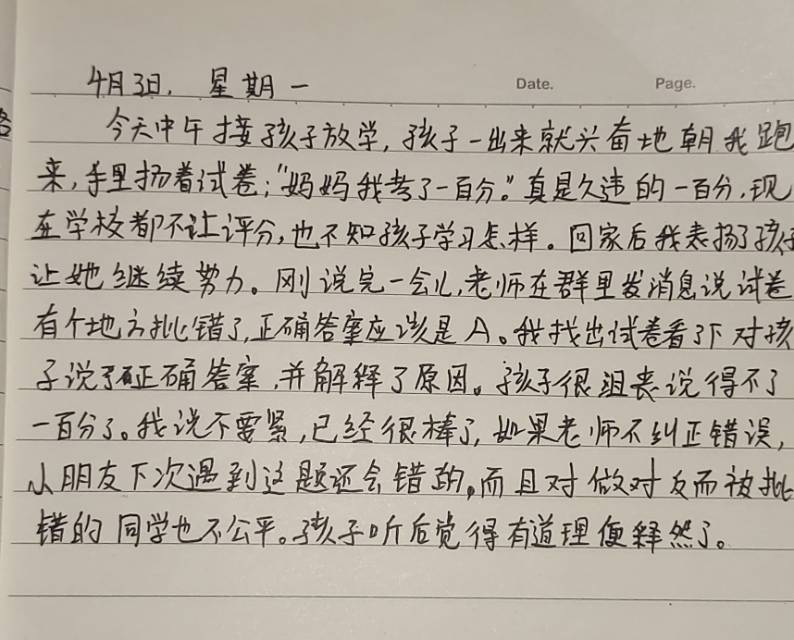 Date. Page.
4月3日，星期一
今天中午接孩子放学，孩子一出来就兴奋地朝我跑
来，手里扬着试卷："妈妈我考了一百分。"真是久违的一百分，现
在学校都不让评分，也不知孩子学习怎样。回家后我表扬了孩子
让她继续努力。刚说完一会儿，老师在群里发消息说试卷
有个地方批错了，正确答案应该是A。我找出试卷看了下对孩
子说了正确答案，并解释了原因。孩子很沮丧说得不了
一百分了。我说不要紧，已经很棒了，如果老师不纠正错误，
小朋友下次遇到这题还会错的，而且对做对反而被批
错的同学也不公平。孩子听后觉得有道理便释然了。